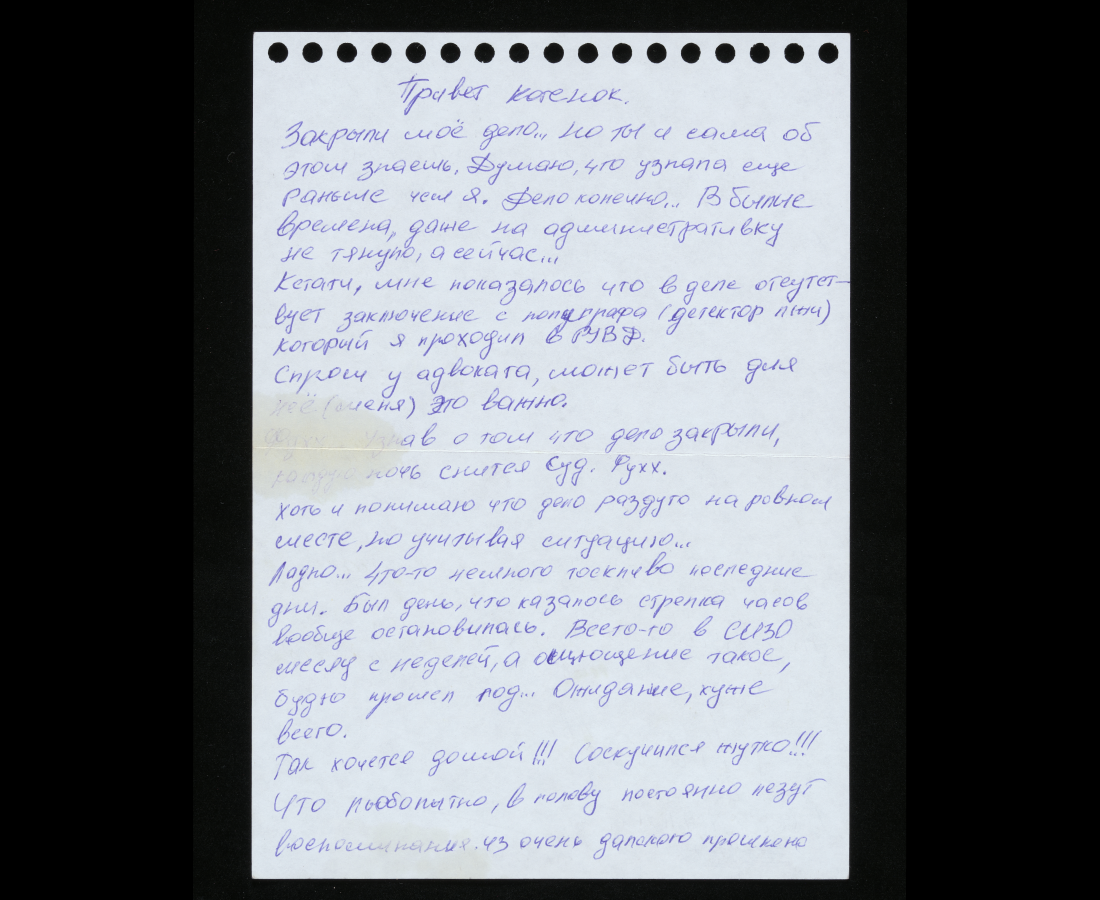 Привет котенок.
Закрыли моё дело... Но ты и сама об
этом знаешь. Думаю, что узнала еще
раньше чем я. Дело конечно... В былые
времена, даже на административку
не тянуло, а сейчас...
Кстати, мне показалось что в деле отсутст-
вует заключение с полиграфа (детектор лжи)
который я проходил в РУВД.
Спроси у адвоката, может быть для
неё (меня) это важно.
Узнав о том что дело закрыли,
каждую ночь снится Суд. Фухх.
Хоть и понимаю что дело раздуто на ровном
месте, но учитывая ситуацию...
Ладно... Что-то немного тоскливо последние
дни. Был день, что казалось стрелка часов
вообще остановилась. Всего-то в СИЗО
месяц с неделей, а ощющение такое,
будто прошел год... Ожидание, хуже
всего.
Так хочется домой!!! Соскучился жутко!!!
Что любопытно, в голову постоянно лезут
воспоминания из очень далекого прошлого